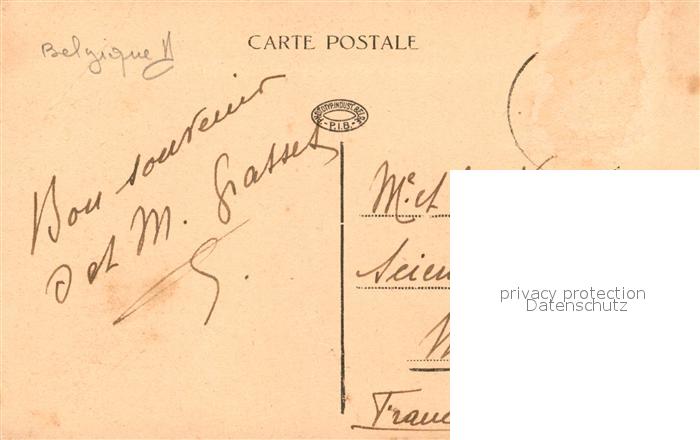 Belgique
CARTE POSTALE
PHOTOTYP. INDUST. BELGE
- P.I.B. -
Bon souvenir
D et M. Grasset
Me et
Scien
Franc
privacy protection
Datenschutz